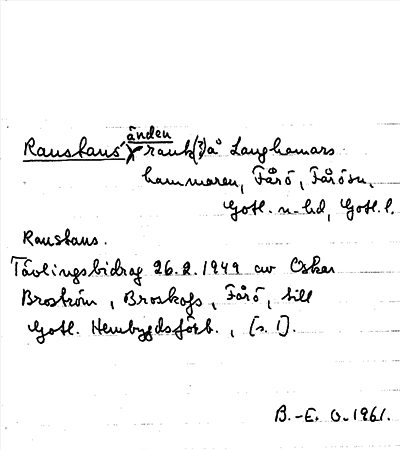 änden
Raustaus' rauk(?) å Langhamars-
hammaren, Fårö, Fårösn,
Gotl. n. hd, Gotl. l.
Raustaus.
Tävlingsbidrag 26.2.1949 av Oskar
Broström, Broskogs, Fårö, till
Gotl. Hembygdsförb., [s. 1].
B.-E. O. 1961.